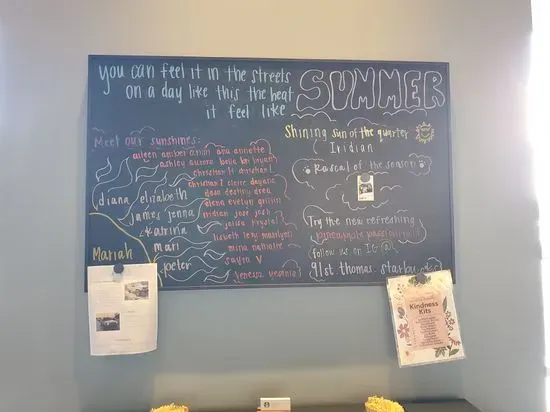 you can feel it in the streets
on a day like this the heat
it feel like
SUMMER
Meet our sunshines:
aileen amber anish ana annette
ashley aurora bella bri bryant
christian H christian L
christian Z claire dayana
destiny drea
elena evelyn
iridian jose josh
krystal
lizbeth lexy
mina nathalie
sayra V
Venessa
diana
elizabeth
james jenna
katrina
mari
peter
Mariah
Shining sun of the quarter
Iridian
Rascal of the season
Try the new refreshing
pineapple passionfruit
follow us on IG @
91st.thomas.starbucks
Kindness
Kits